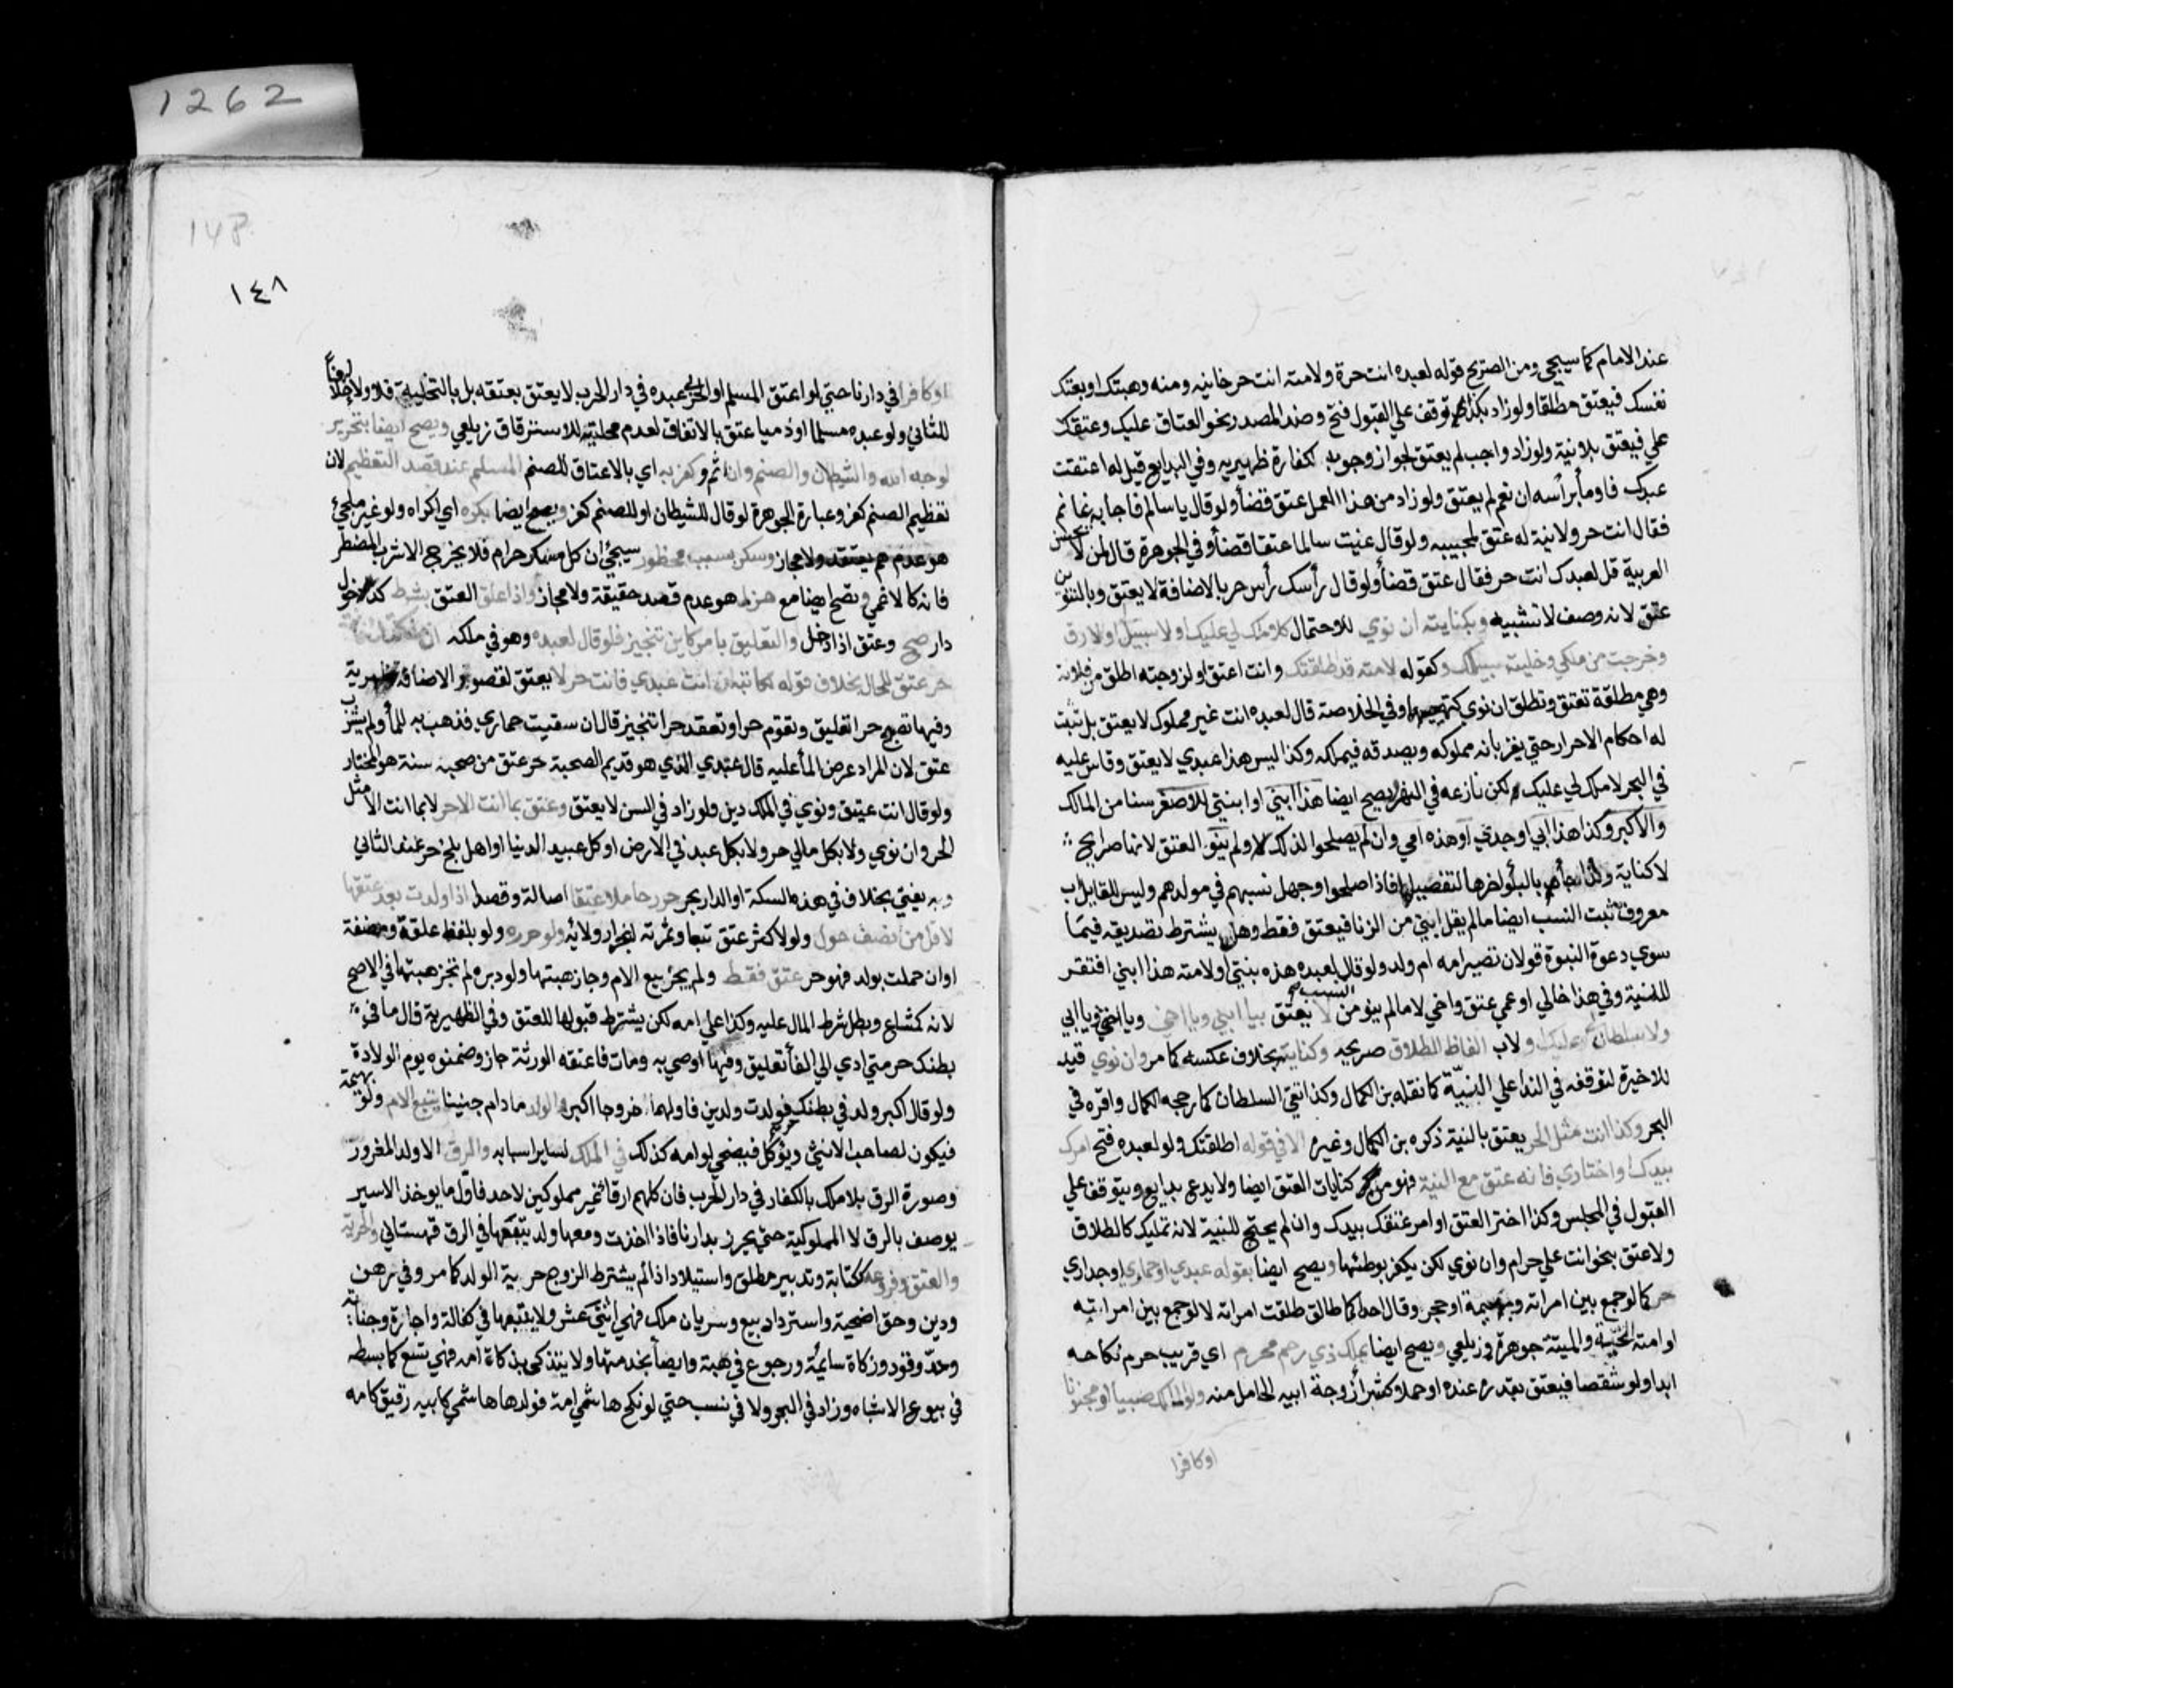 عند الامام كما سيجي ومن الصريح قوله لعبده انت حرة ولامته انت حر خانيه ومنه وهبتك او بعتك
نفسك فيعتق مطلقا ولو زاد بكذا توقف علي القبول فتح وضد المصدر نحو العتاق عليك وعتقك
علي فيعتق بلا نية ولو زاد واجب لم يعتق لجواز وجوبه لكفارة ظهيريه وفي البدايع قيل له اعتقت
عبدك فاوما براسه ان نعم لم يعتق ولو زاد من هذا العمل عتق قضأ ولو قال يا سالم فاجابه غانم
فقال انت حر ولا نية له عتق المجيب ولو قال عنيت سالما عتقا قضأ وفي الجوهرة قال لمن لا يحسن
العربية قل لعبدك انت حر فقال عتق قضأ ولو قال رأسك رأس حر بالاضافة لا يعتق وبالتنوين
عتق لانه وصف لا تشبيه وبكنايته ان نوي للاحتمال كلا ملك لي عليك او لا سبيل او لا رق
وخرجت من ملكي وخليت سبيلك وكقوله لامته قد طلقتك وانت اعتق او لزوجته اطلق من فلانة
وهي مطلقة تعتق وتطلق ان نوي وفي الخلاصة قال لعبده انت غير مملوك لا يعتق بل تثبت
له احكام الاحرار حتي يقر بانه مملوكه ويصدقه فيملكه وكذا ليس هذا عبدي لا يعتق وقاس عليه
في البحر لا ملك لي عليك لكن نازعه في النهر ويصح ايضا هذا ابني او ابنتي للاصغر سنا من المالك
والاكبر وكذا هذا ابي او جدي او هذه امي وان لم يصلحوا لذلك ولم ينو العتق لانها صرايح
لا كناية ولذا بالبا ولخرها لتفصيلها فاذا صلحوا وجهل نسبهم في مولدهم وليس للقايل اب
معروف ثبت النسب ايضا ما لم يقل ابني من الزنا فيعتق فقط وهل يشترط تصديقه فيما
سوي دعوة البنوة قولان تصير امه ام ولد ولو قال لعبده هذه بنتي او لامته هذا ابني افتقر
للنية وفي هذا خالي او عمي عتق واخي لا ما لم ينو من النسب لا يعتق بيا ابني ويا اخي ويا اختي ويا ابي
ولا سلطان لي عليك ولا ب الفاظ الطلاق صريحه وكنايته بخلاف عكسه كما مر وان نوي قيد
للاخيرة لتوقفه في الندأ علي النية كما نقله بن الكمال وكذا نفي السلطان كما رجحه الكمال واقره في
البحر وكذا انت مثل الحر يعتق بالنية ذكره بن الكمال وغيره الا في قوله اطلقتك ولو لعبده فتح امرك
بيدك او اختاري فانه عتق مع النية فهو من كنايات العتق ايضا ولا بدع بدايع ويتوقف علي
القبول في المجلس وكذا اختر العتق او امر عتقك بيدك وان لم يحتج للنية لانه تمليك كالطلاق
ولا عتق بنحو انت علي حرام وان نوي لكن يكفر بوطئها ويصح ايضا بقوله عبدي او حماري او جداري
حر كما لو جمع بين امراته وبهيمة او حجر وقال احداكما طالق طلقت امراته لا لو جمع بين امراته
او امته الحية والميتة جوهرة وزيلعي ويصح ايضا بملك ذي رحم محرم اي قريب حرم نكاحه
ابدا ولو شقصا فيعتق بقدره عنده او حملا وكشرأ زوجة ابيه الحامل منه ولو المالك صبيا او مجنونا
اوكافرا
148
١٤٨
اوكافرا في دارنا حتي لو اعتق المسلم او الحربي عبده في دار الحرب لا يعتق بعتقه بل بالتخلية فلا ولا خلافا
للثاني ولو عبده مسلما او ذميا عتق بالاتفاق لعدم محليته للاسترقاق زيلعي ويصح ايضا بتحرير
لوجه الله والشيطان والصنم وان اثم وكفر به اي بالاعتاق للصنم المسلم عند قصد التعظيم لان
تعظيم الصنم كفر وعبارة الجوهرة لو قال للشيطان او للصنم كفر ويصح ايضا بكره اي اكراه ولو غير ملجئ
وسكر بسبب محظور سيجئ ان كل مسكر حرام فلا يخرج الا شرب المضطر
فانه كالاغمي ويصح ايضا مع هزل هو عدم قصد حقيقة ولا مجاز واذا علق العتق بشرط كدخول
دار صح وعتق اذا دخل والتعليق بامر كاين تنجيز فلو قال لعبده وهو في ملكه ان ملكتك فانت
حر عتق للحال بخلاف قوله لمكاتبه ان انت عبدي فانت حر لا يعتق لقصور الاضافة ظهيرية
وفيها تصبح حر تعليق وتقوم حرا وتقعد حر تنجيز قال ان سقيت حماري فذهب به للمأ ولم يشرب
عتق لان المراد عرض المأ عليه قال عبدي الذي هو قديم الصحبة حر عتق من صحبه سنة هو المختار
ولو قال انت عتيق ونوي في الملك دين ولو زاد في السن لا يعتق وعتق بما انت الا حر لا بما انت الا مثل
الحر وان نوي ولا بكل مالي حر ولا بكل عبد في الارض او كل عبيد الدنيا او اهل بلخ حر عند الثاني
وبه يفتي بخلاف في هذه السكة او الدار بحر حرر حاملا عتقا اصالة وقصدا اذا ولدت بعد عتقها
لاقل من نصف حول ولو لاكثر عتق تبعا وثمرته انجرار ولائه ولو حرره ولو بلفظ علقة ومضغة
او ان حملت بولد فهو حر عتق فقط ولم يجز بيع الام وجاز هبتها ولو دبره لم تجز هبتها في الاصح
لانه كمشاع وبطل شرط المال عليه وكذا علي امه لكن يشترط قبولها للعتق وفي الظهيرية قال ما في
بطنك حر متي ادي الي الفا تعليق وفيها اوصي به ومات فاعتقه الورثة جاز وضمنوه يوم الولادة
ولو قال اكبر ولد في بطنك حر فولدت ولدين فاولهما خروجا اكبر والولد ما دام جنينا يتبع الام ولو بهيمة
فيكون لصاحب الانثي ويؤكل ويضحي لو امه كذلك في الملك لساير اسبابه والرق الا ولد المغرور
وصورة الرق بلا ملك بالكفار في دار الحرب فان كلهم ارقا غير مملوكين لاحد فاول ما يوخذ الاسير
يوصف بالرق لا المملوكية حتي يحرز بدارنا فاذا اخذت ومعها ولد يتبعها في الرق قهستاني والحرية
والعتق وفروعه ككتابة وتدبير مطلق واستيلاد اذا لم يشترط الزوج حرية الولد كما مر وفي رهن
ودين وحق اضحية واسترداد بيع وسريان ملك فهي اثنتي عشر ولا يتبعها في كفالة واجارة وجناية
وحد وقود وزكاة سايمة ورجوع في هبة وايصأ بخدمتها ولا يتذكي بذكاة امه فهي تسع كما بسطه
في بيوع الاشباه وزاد في البحر ولا في نسب حتي لو نكح هاشمي امة فولدها هاشمي كابيه رقيق كامه
1262